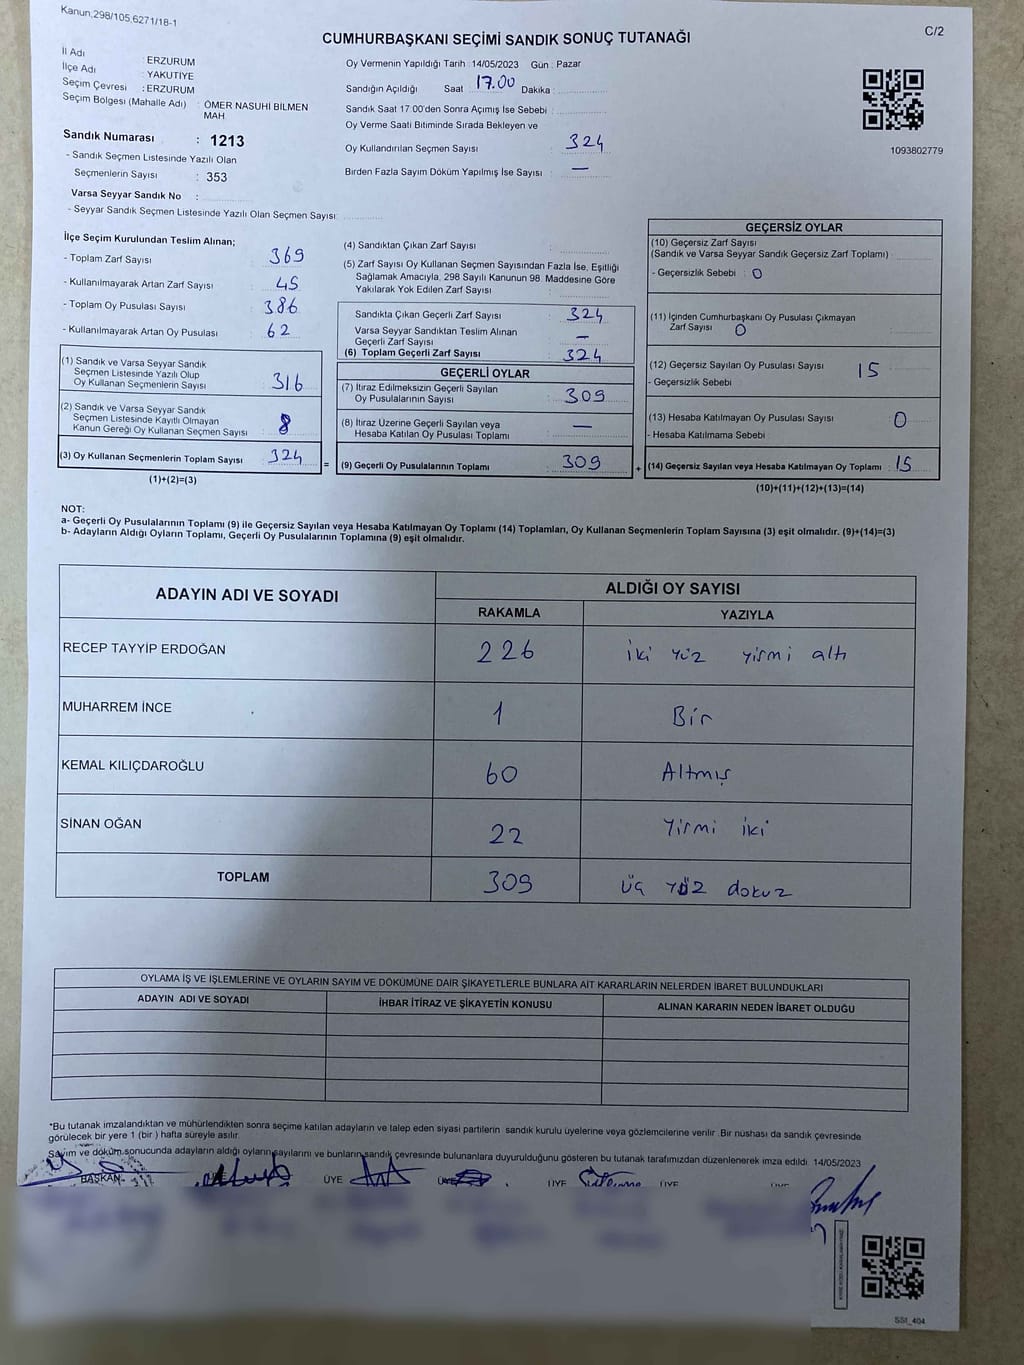 Kanun,298/105,6271/18-1
C/2
CUMHURBAŞKANI SEÇİMİ SANDIK SONUÇ TUTANAĞI
İl Adı : ERZURUM
İlçe Adı : YAKUTİYE
Seçim Çevresi : ERZURUM
Seçim Bölgesi (Mahalle Adı) : ÖMER NASUHİ BİLMEN
MAH.
Sandık Numarası : 1213
- Sandık Seçmen Listesinde Yazılı Olan
Seçmenlerin Sayısı : 353
Varsa Seyyar Sandık No :
- Seyyar Sandık Seçmen Listesinde Yazılı Olan Seçmen Sayısı
Oy Vermenin Yapıldığı Tarih : 14/05/2023 Gün : Pazar
Sandığın Açıldığı Saat 17.00 Dakika :
Sandık Saat 17 00'den Sonra Açımış İse Sebebi :
Oy Verme Saati Bitiminde Sırada Bekleyen ve
Oy Kullandırılan Seçmen Sayısı : 324
Birden Fazla Sayım Döküm Yapılmış İse Sayısı : —
1093802779
İlçe Seçim Kurulundan Teslim Alınan;
- Toplam Zarf Sayısı : 369
- Kullanılmayarak Artan Zarf Sayısı : 45
- Toplam Oy Pusulası Sayısı : 386
- Kullanılmayarak Artan Oy Pusulası : 62
(1) Sandık ve Varsa Seyyar Sandık
Seçmen Listesinde Yazılı Olup
Oy Kullanan Seçmenlerin Sayısı : 316
(2) Sandık ve Varsa Seyyar Sandık
Seçmen Listesinde Kayıtlı Olmayan
Kanun Gereği Oy Kullanan Seçmen Sayısı : 8
(3) Oy Kullanan Seçmenlerin Toplam Sayısı : 324
(1)+(2)=(3)
(4) Sandıktan Çıkan Zarf Sayısı :
(5) Zarf Sayısı Oy Kullanan Seçmen Sayısından Fazla İse, Eşitliği
Sağlamak Amacıyla, 298 Sayılı Kanunun 98. Maddesine Göre
Yakılarak Yok Edilen Zarf Sayısı :
Sandıkta Çıkan Geçerli Zarf Sayısı : 324
Varsa Seyyar Sandıktan Teslim Alınan
Geçerli Zarf Sayısı : —
(6) Toplam Geçerli Zarf Sayısı : 324
GEÇERLİ OYLAR
(7) İtiraz Edilmeksizin Geçerli Sayılan
Oy Pusulalarının Sayısı : 309
(8) İtiraz Üzerine Geçerli Sayılan veya
Hesaba Katılan Oy Pusulası Toplamı : —
= (9) Geçerli Oy Pusulalarının Toplamı : 309 +
GEÇERSİZ OYLAR
(10) Geçersiz Zarf Sayısı
(Sandık ve Varsa Seyyar Sandık Geçersiz Zarf Toplamı)
- Geçersizlik Sebebi : 0
(11) İçinden Cumhurbaşkanı Oy Pusulası Çıkmayan
Zarf Sayısı 0
(12) Geçersiz Sayılan Oy Pusulası Sayısı : 15
- Geçersizlik Sebebi
(13) Hesaba Katılmayan Oy Pusulası Sayısı : 0
- Hesaba Katılmama Sebebi
(14) Geçersiz Sayılan veya Hesaba Katılmayan Oy Toplamı : 15
(10)+(11)+(12)+(13)=(14)
NOT:
a- Geçerli Oy Pusulalarının Toplamı (9) ile Geçersiz Sayılan veya Hesaba Katılmayan Oy Toplamı (14) Toplamları, Oy Kullanan Seçmenlerin Toplam Sayısına (3) eşit olmalıdır. (9)+(14)=(3)
b- Adayların Aldığı Oyların Toplamı, Geçerli Oy Pusulalarının Toplamına (9) eşit olmalıdır.
ADAYIN ADI VE SOYADI
ALDIĞI OY SAYISI
RAKAMLA YAZIYLA
RECEP TAYYİP ERDOĞAN 226 iki yüz yirmi altı
MUHARREM İNCE 1 Bir
KEMAL KILIÇDAROĞLU 60 Altmış
SİNAN OĞAN 22 Yirmi iki
TOPLAM 309 üç yüz dokuz
OYLAMA İŞ VE İŞLEMLERİNE VE OYLARIN SAYIM VE DÖKÜMÜNE DAİR ŞİKAYETLERLE BUNLARA AİT KARARLARIN NELERDEN İBARET BULUNDUKLARI
ADAYIN ADI VE SOYADI İHBAR İTİRAZ VE ŞİKAYETİN KONUSU ALINAN KARARIN NEDEN İBARET OLDUĞU
*Bu tutanak imzalandıktan ve mühürlendikten sonra seçime katılan adayların ve talep eden siyasi partilerin sandık kurulu üyelerine veya gözlemcilerine verilir. Bir nüshası da sandık çevresinde
görülecek bir yere 1 (bir ) hafta süreyle asılır.
Sayım ve döküm sonucunda adayların aldığı oyların sayılarını ve bunların sandık çevresinde bulunanlara duyurulduğunu gösteren bu tutanak tarafımızdan düzenlenerek imza edildi. 14/05/2023
BAŞKAN ÜYE ÜYE ÜYE ÜYE ÜYE
SSI_404